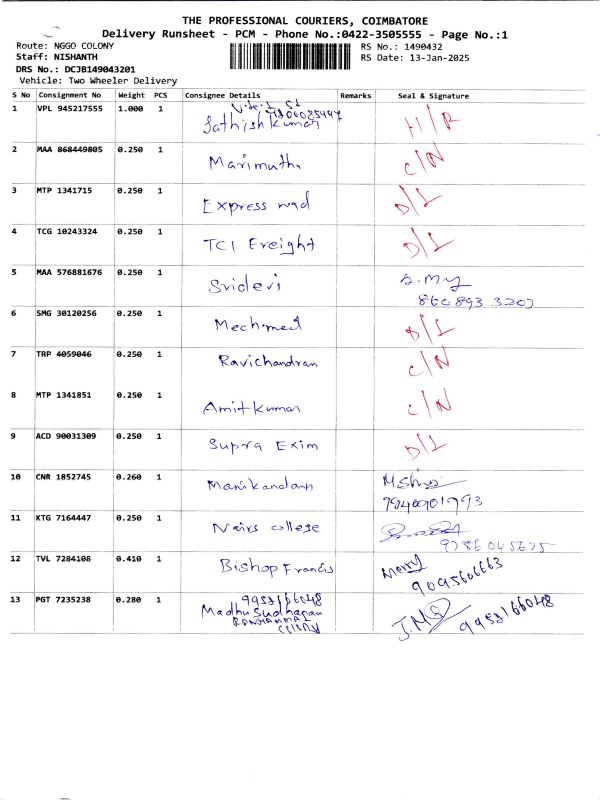 THE PROFESSIONAL COURIERS, COIMBATORE
Delivery Runsheet - PCM - Phone No.:0422-3505555 - Page No.:1
Route: NGGO COLONY
RS No.: 1490432
Staff: NISHANTH
RS Date: 13-Jan-2025
DRS No.: DCJB149043201
Vehicle: Two Wheeler Delivery
S No Consignment No Weight PCS Consignee Details Remarks Seal & Signature
1 VPL 945217555 1.000 1 Sathish kumar H/R
2 MAA 868449805 0.250 1 Marimuthu C/N
3 MTP 1341715 0.250 1 Express D/L
4 TCG 10243324 0.250 1 TCI Freight D/L
5 MAA 576881676 0.250 1 Sridevi
860893 3207
6 SMG 30120256 0.250 1 Mechmed D/L
7 TRP 4059046 0.250 1 Ravichandran C/N
8 MTP 1341851 0.250 1 Amit kumar C/N
9 ACD 90031309 0.250 1 Supra Exim D/L
10 CNR 1852745 0.260 1 Manikandan
11 KTG 7164447 0.250 1 Nairs college
12 TVL 7284108 0.410 1 Bishop Francis Merry
9095606663
13 PGT 7235238 0.280 1 9952166048
Madhu Sudhanan
9952166048